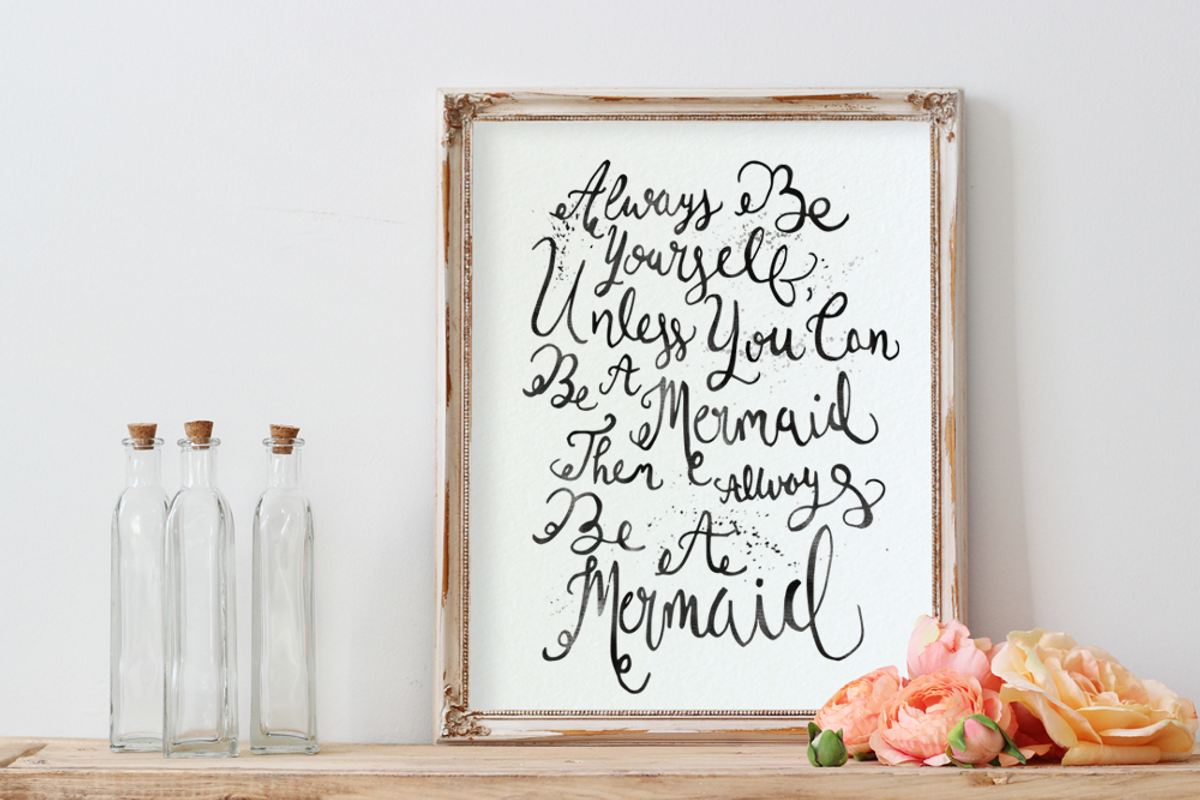 Always Be
Yourself,
Unless You Can
Be A Mermaid
Then Always
Be A
Mermaid